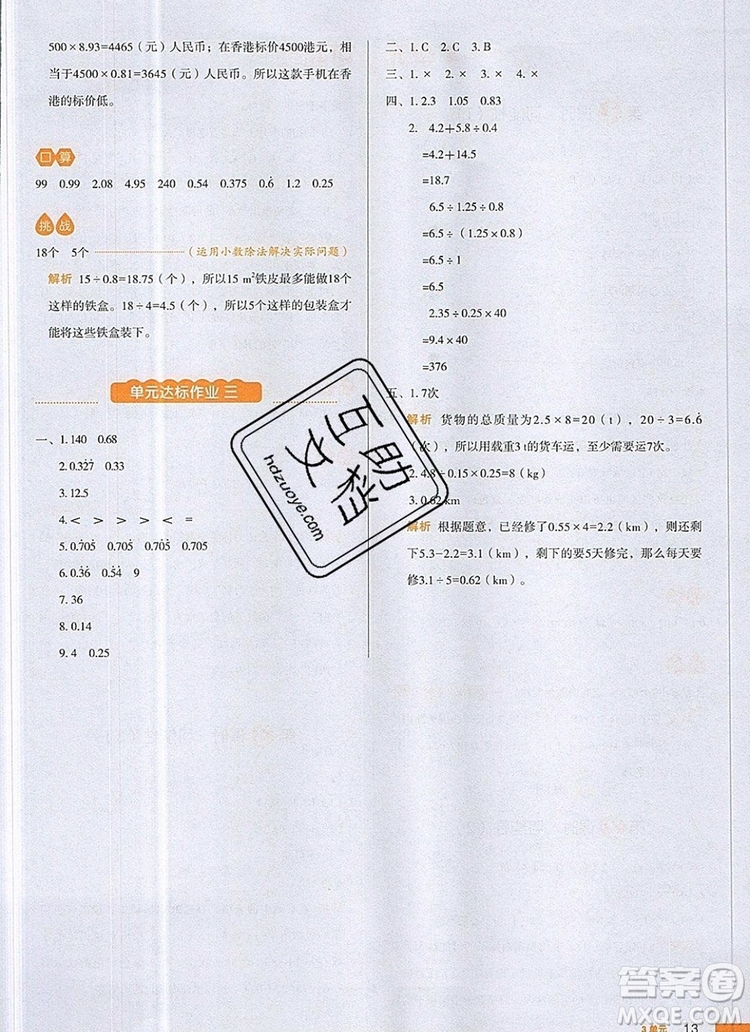 500×8.93=4465（元）人民币；在香港标价4500港元，相
当于4500×0.81=3645（元）人民币。所以这款手机在香
港的标价低。
口算
99 0.99 2.08 4.95 240 0.54 0.375 0.6̇ 1.2 0.25
挑战
18个 5个 （运用小数除法解决实际问题）
解析 15÷0.8=18.75（个），所以15 m²铁皮最多能做18个
这样的铁盒。18÷4=4.5（个），所以5个这样的包装盒才
能将这些铁盒装下。
单元达标作业 三
一、1. 140 0.68
2. 0.3̇27̇ 0.33
3. 12.5
4. < > > > =
5. 0.7̇05̇ 0.70̇5̇ 0.705̇ 0.705
6. 0.3̇6̇ 0.5̇4̇ 9
7. 36
8. 0.14
9. 4 0.25
二、1. C 2. C 3. B
三、1. × 2. × 3. × 4. ×
四、1. 2.3 1.05 0.83
2. 4.2+5.8÷0.4
=4.2+14.5
=18.7
6.5÷1.25÷0.8
=6.5÷（1.25×0.8）
=6.5÷1
=6.5
2.35÷0.25×40
=9.4×40
=376
五、1. 7次
解析 货物的总质量为2.5×8=20（t），20÷3=6.6̇
（次），所以用载重3 t的货车运，至少需要运7次。
2. 4.8÷0.15×0.25=8（kg）
3. 0.62 km
解析 根据题意，已经修了0.55×4=2.2（km），则还剩
下5.3-2.2=3.1（km），剩下的要5天修完，那么每天要
修3.1÷5=0.62（km）。
互助文档
hdzuoye.com
答案圈
MXQE.COM
3单元 13